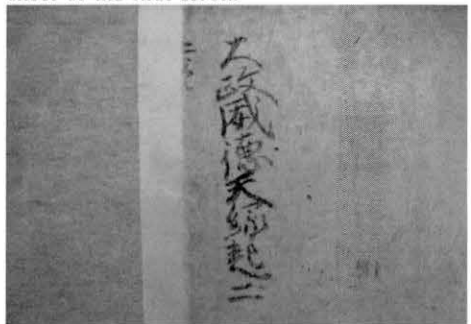 大政威徳天縁起二